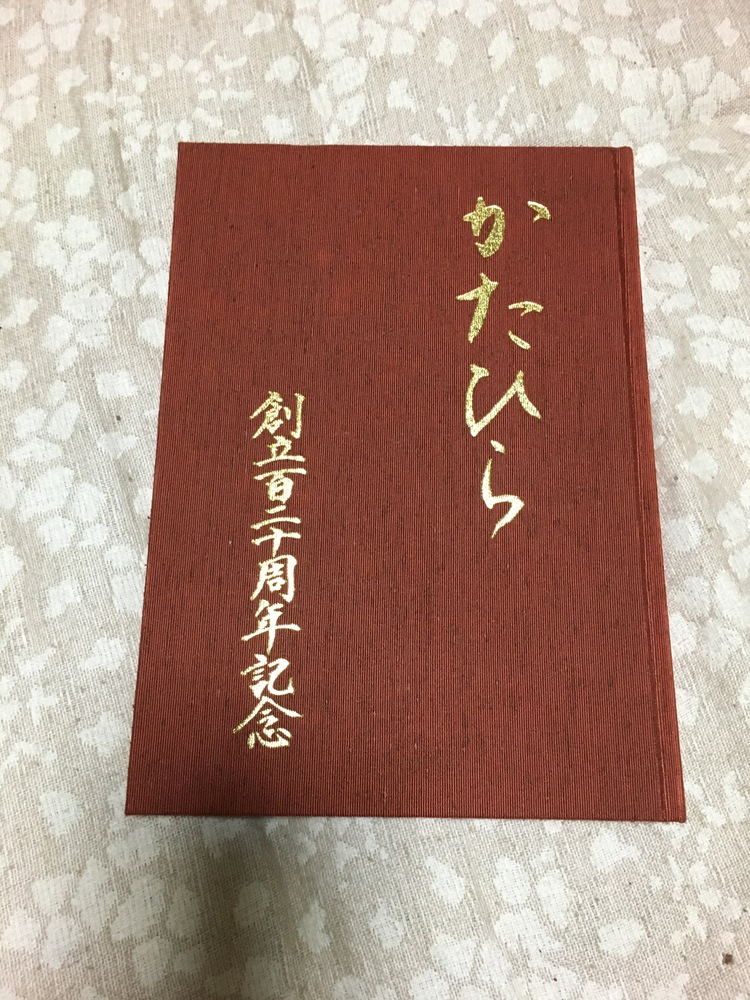 かたひら
創立百二十周年記念